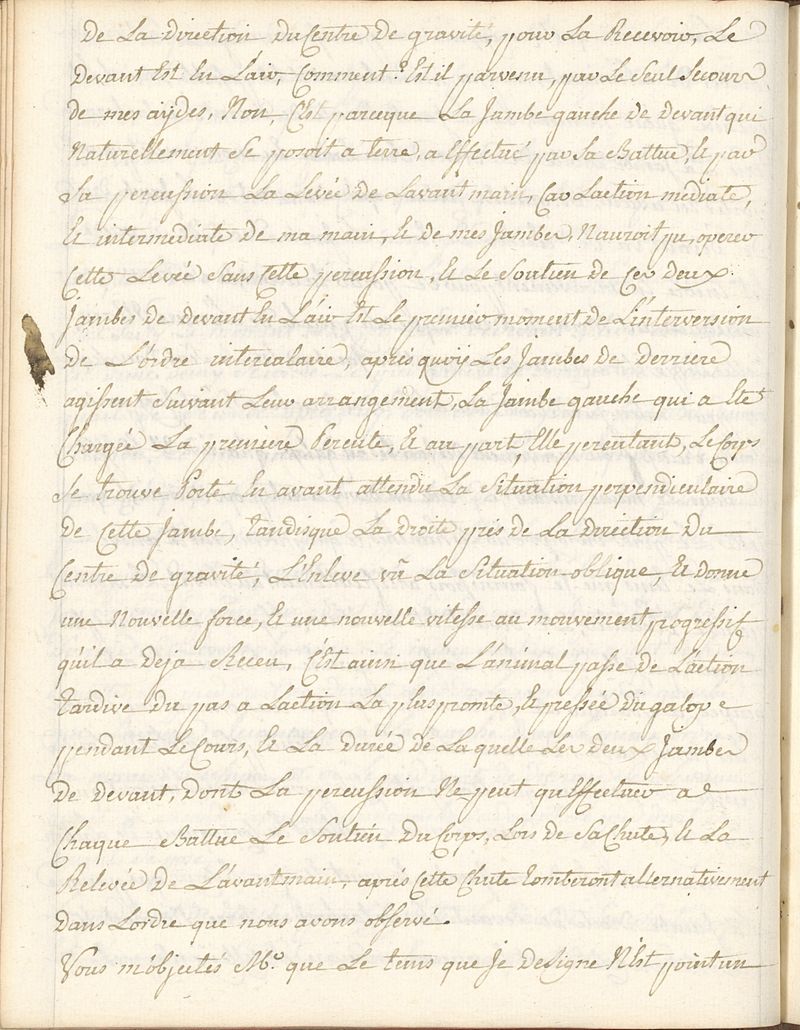 De La Direction Du Centre De gravité, pour La Recevoir, Le
Devant Est En L'air, Comment? Est il parvenu, par Le Seul Secours
de mes aydes, Non, C'Est parceque La Jambe gauche de devant qui
Naturellement Se posoit a terre, a Effectué par Sa Battue, Et par
Sa percussion La Levée De Lavant main, Car Laction mediate,
Et intermediate de ma main, Et de mes Jambes, Nauroit pu, operer
Cette Levée Sans Cette percussion, Et Le Soutien de Ces deux
Jambes De devant En L'air Est Le premier moment de L'interversion
de L'ordre intercalaire, après quoy Les Jambes De Derriere
agissent Suivant Leur arrangement, La Jambe gauche qui a Eté
Chargée La premiere Percute, Et au part, Elle percutant, Le Corps
Se trouve Porté En avant attendu La Situation perpendiculaire
De Cette Jambe, tandisque La Droite près de La Direction Du
Centre De gravité, L'Enleve vû La Situation oblique, Et Donne
une Nouvelle force, Et une nouvelle vitesse au mouvement progressif
qu'il a Deja Receu, C'Est ainsi que L'animal passe de L'action
tardive du pas a Laction La plus promte, Et pressée Du galope
pendant Le Cours, Et La durée de Laquelle Les deux Jambes
De devant, Dont La percussion Ne peut qu'Effectuer a
Chaque Battue Le Soutien Du Corps, Lors de Sa Chute, Et La
Relevée De L'avantmain, après Cette Chute tomberont alternativement
Dans Lordre que nous avons observé.
Vous m'objectés Mr. que Le tems que Je designe N'Est point un